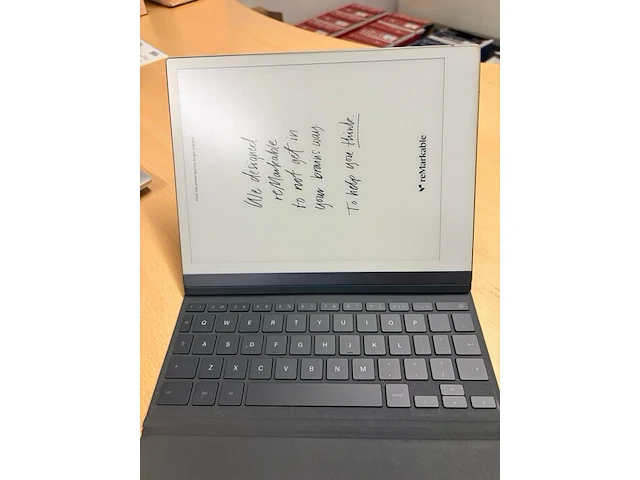 We designed
reMarkable
to not get in
your brains way
To help you think.
reMarkable
Q W E R T Y U I O P
A S D F G H J K L
Z X C V B N M